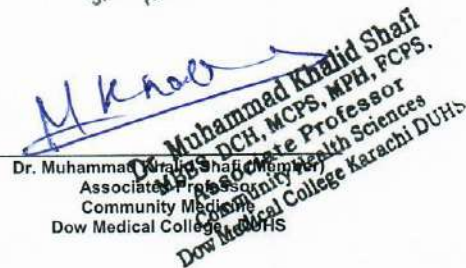 M Khalid
Dr. Muhammad Khalid Shafi
MBBS, DCH, MCPS, MPH, FCPS.
Associate Professor
Community Health Sciences
Dow Medical College Karachi DUHS
Dr. Muhammad Khalid Shafi (Member)
Associate Professor
Community Medicine
Dow Medical College, DUHS